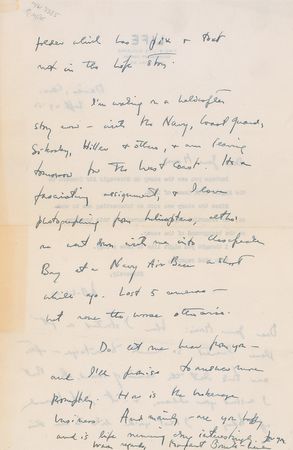 folder which has you & that
not in the Life story.
I'm working on a helicopter
story now — with the Navy, Coast Guard,
Sikorsky, Hiller & others, & am leaving
tomorrow for the West Coast. Its a
fascinating assignment, & I love
photographing from helicopters, altho
one went down with me into Chesapeake
Bay at a Navy Air Base a short
while ago. Lost 5 cameras —
but none the worse otherwise.
Do let me hear from you —
and I'll promise to answer more
promptly. How is the
business. And mainly — are you happy
and is life running along interestingly for you
Warm regards, Margaret Bourke-White